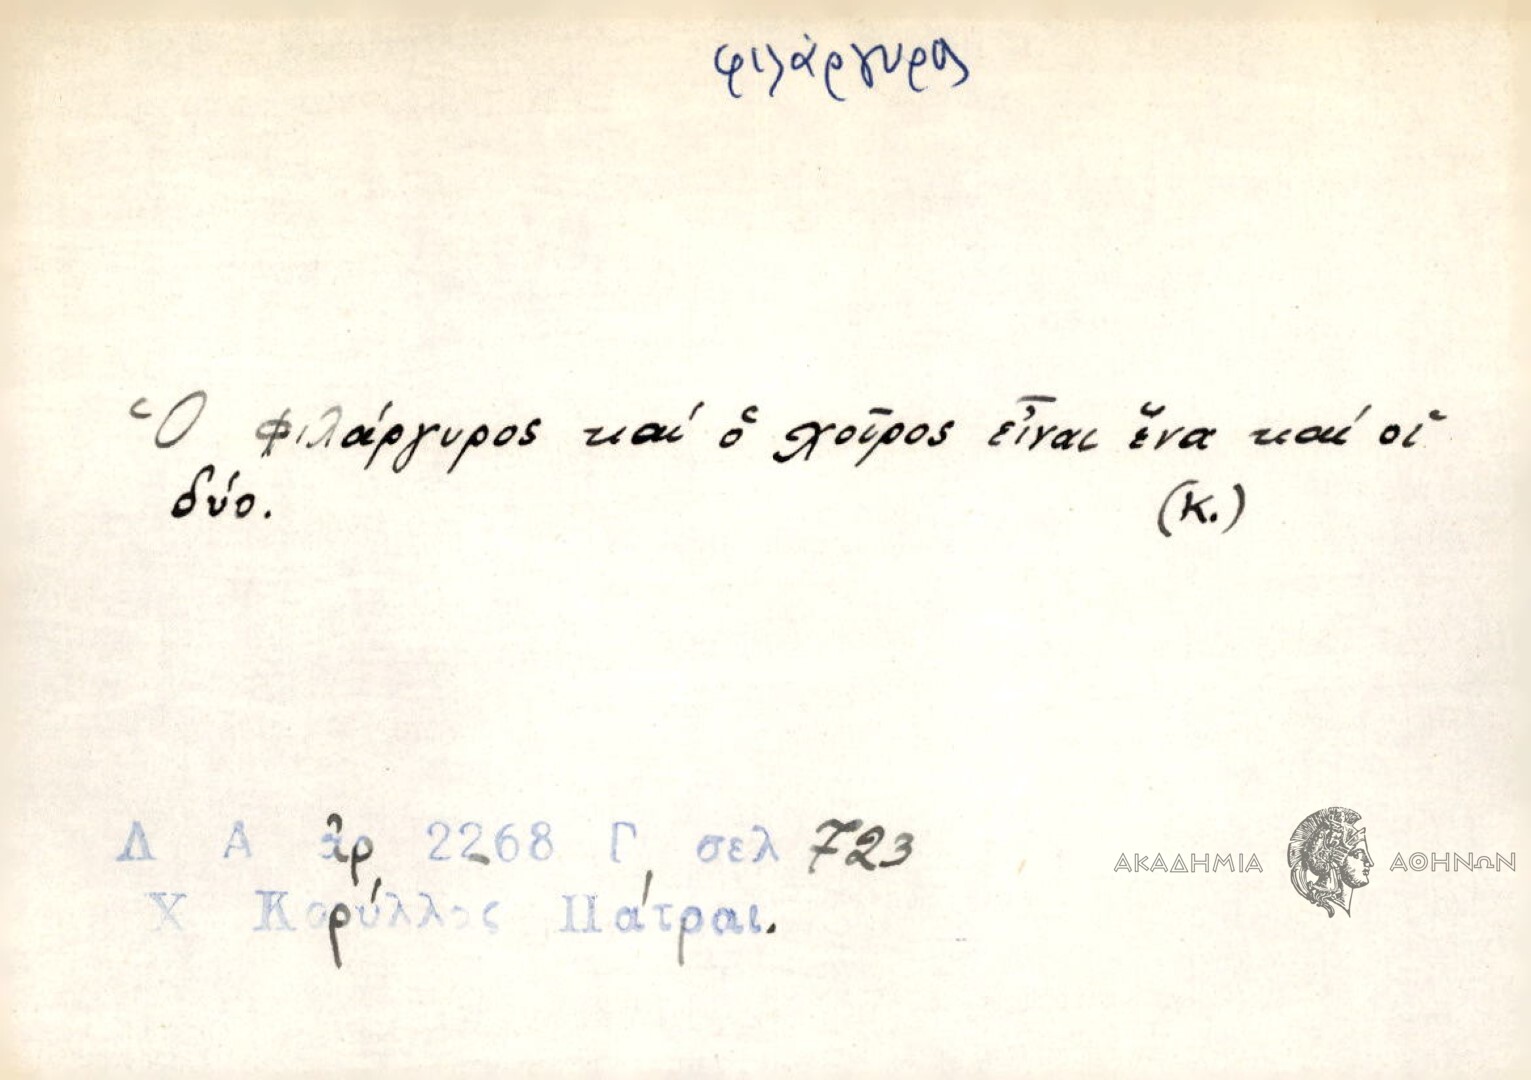 φιλάργυρος
Ὁ φιλάργυρος καί ὁ χοῖρος εἶναι ἕνα καί οἱ
δύο. (κ.)
Λ Α ἀρ 2268 Γ, σελ 723
Χ Κορύλλος Πάτραι.
ΑΚΑΔΗΜΙΑ ΑΘΗΝΩΝ